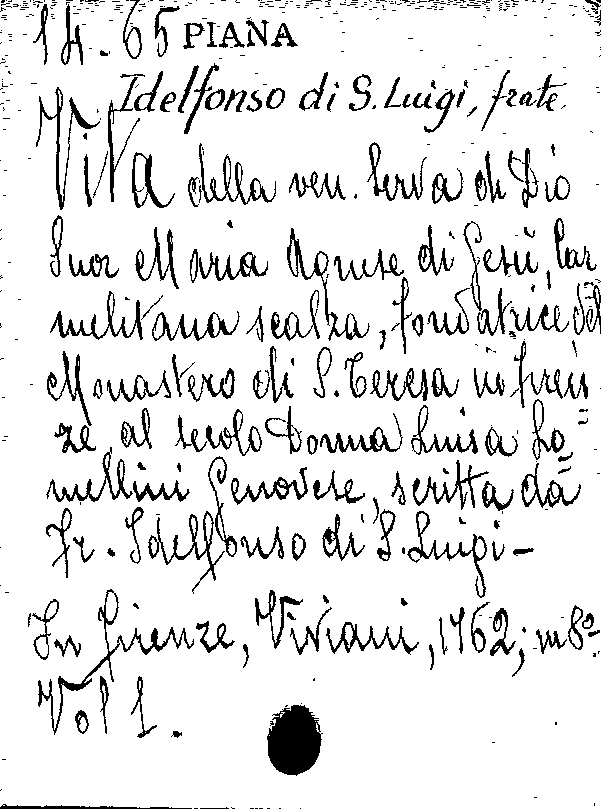 14.65 PIANA
Idelfonso di S. Luigi, frate.
Vita della ven. Serva di Dio
Suor Maria Agnese di Gesù, Car
melitana scalza, fondatrice del
Monastero di S. Teresa in Firen
ze, al secolo Donna Luisa Lo=
mellini Genovese, scritta da
Fr. Idelfonso di S. Luigi -
In Firenze, Viviani, 1762; in 8º
Vol 1.